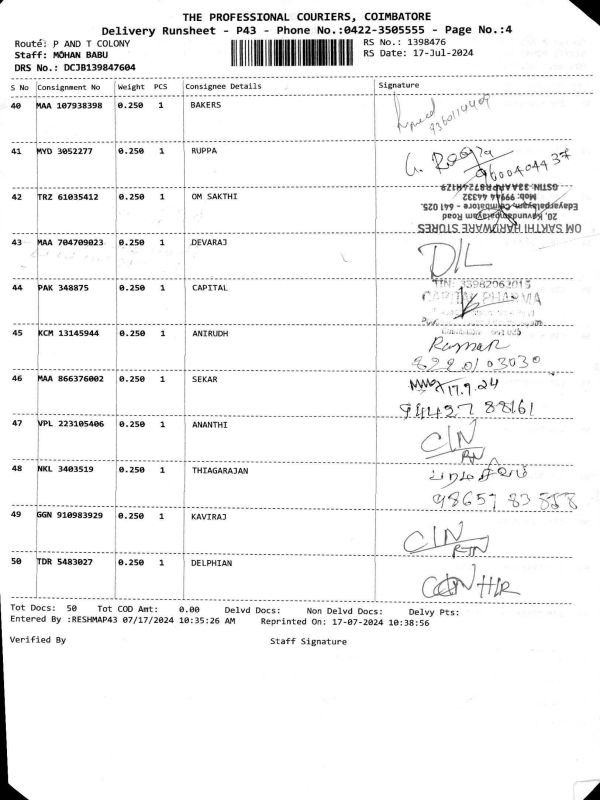 THE PROFESSIONAL COURIERS, COIMBATORE
Delivery Runsheet - P43 - Phone No.:0422-3505555 - Page No.:4
Route: P AND T COLONY RS No.: 1398476
Staff: MOHAN BABU RS Date: 17-Jul-2024
DRS No.: DCJB139847604
S No Consignment No Weight PCS Consignee Details Signature
40 MAA 107938398 0.250 1 BAKERS
41 MYD 3052277 0.250 1 RUPPA
9600404437
42 TRZ 61035412 0.250 1 OM SAKTHI
OM SAKTHI HARDWARE STORES
20, Kavundampalayam Road
Edayarpalayam, Coimbatore - 641 025.
Mob: 99944 44332
43 MAA 704709023 0.250 1 DEVARAJ D/L
44 PAK 348875 0.250 1 CAPITAL
TIN: 33982063015
CAPITAL PHARMA
45 KCM 13145944 0.250 1 ANIRUDH
Raman
8220103030
46 MAA 866376002 0.250 1 SEKAR
17.9.24
94427 88161
47 VPL 223105406 0.250 1 ANANTHI C/N
RN
48 NKL 3403519 0.250 1 THIAGARAJAN
98657 83558
49 GGN 910983929 0.250 1 KAVIRAJ C/N
RTN
50 TDR 5483027 0.250 1 DELPHIAN
Tot Docs: 50 Tot COD Amt: 0.00 Delvd Docs: Non Delvd Docs: Delvy Pts:
Entered By :RESHMAP43 07/17/2024 10:35:26 AM Reprinted On: 17-07-2024 10:38:56
Verified By Staff Signature